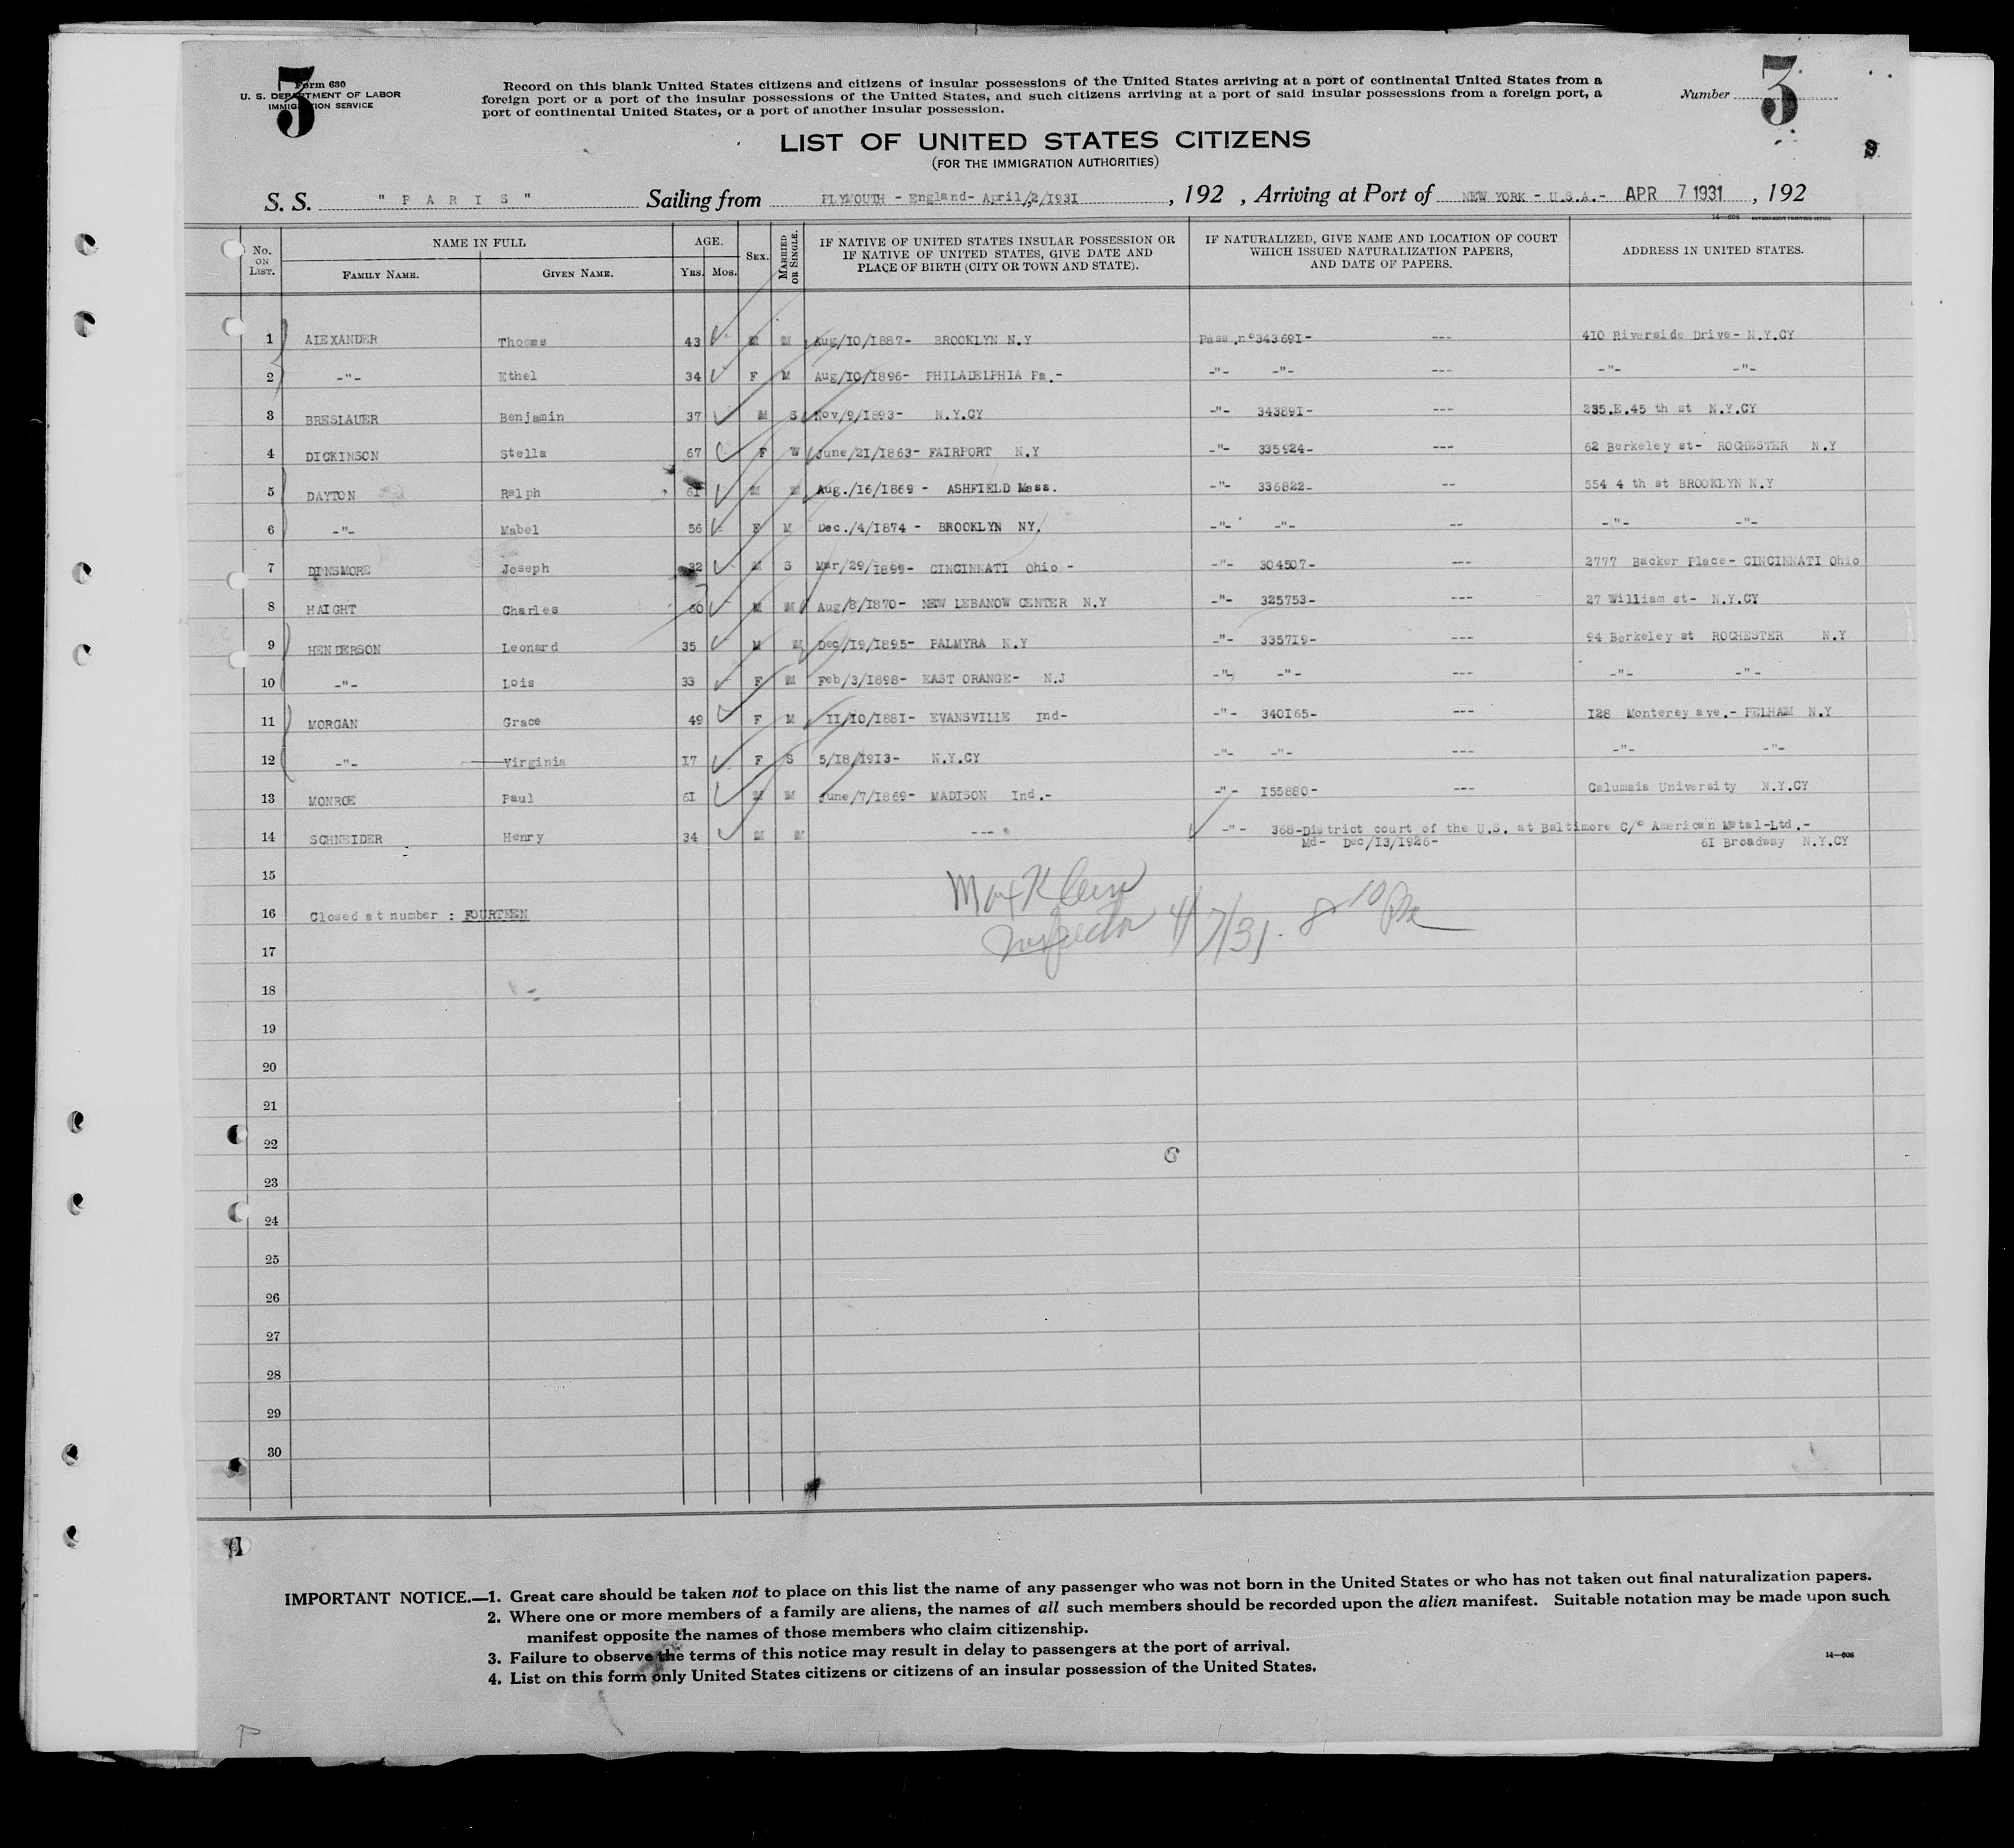 3
Form 630
U. S. DEPARTMENT OF LABOR
IMMIGRATION SERVICE
Record on this blank United States citizens and citizens of insular possessions of the United States arriving at a port of continental United States from a
foreign port or a port of the insular possessions of the United States, and such citizens arriving at a port of said insular possessions from a foreign port, a
port of continental United States, or a port of another insular possession.
Number 3
LIST OF UNITED STATES CITIZENS
(FOR THE IMMIGRATION AUTHORITIES)
S. S. " P A R I S " Sailing from PLYMOUTH - England- April/2/1931 , 192 , Arriving at Port of NEW YORK - U.S.A.- APR 7 1931 , 192
14—608 GOVERNMENT PRINTING OFFICE
No. ON LIST. NAME IN FULL FAMILY NAME. GIVEN NAME. AGE. YRS. MOS. SEX. MARRIED OR SINGLE. IF NATIVE OF UNITED STATES INSULAR POSSESSION OR IF NATIVE OF UNITED STATES, GIVE DATE AND PLACE OF BIRTH (CITY OR TOWN AND STATE). IF NATURALIZED, GIVE NAME AND LOCATION OF COURT WHICH ISSUED NATURALIZATION PAPERS, AND DATE OF PAPERS. ADDRESS IN UNITED STATES.
1 ALEXANDER Thomas 43 M M Aug/10/1887- BROOKLYN N.Y Pass.n°343691- --- 410 Riverside Drive- N.Y.CY
2 -"- Ethel 34 F M Aug/10/1896- PHILADELPHIA Pa.- -"- -"- --- -"- -"-
3 BRESLAUER Benjamin 37 M S Nov/9/1893- N.Y.CY -"- 343891- --- 235.E.45 th st N.Y.CY
4 DICKINSON Stella 67 F W June/21/1863- FAIRPORT N.Y -"- 335924- --- 62 Berkeley st- ROCHESTER N.Y
5 DAYTON Ralph 61 M M Aug./16/1869 - ASHFIELD Mass. -"- 336822- -- 554 4 th st BROOKLYN N.Y
6 -"- Mabel 56 F M Dec./4/1874 - BROOKLYN NY, -"- -"- -- -"- -"-
7 DINSMORE Joseph 32 M S Mar/29/1899- CINCINNATI Ohio - -"- 304507- --- 2777 Backer Place- CINCINNATI Ohio
8 HAIGHT Charles 60 M M Aug/8/1870- NEW LEBANOW CENTER N.Y -"- 325753- --- 27 William st- N.Y.CY
9 HENDERSON Leonard 35 M M Dec/19/1895- PALMYRA N.Y -"- 335719- --- 94 Berkeley st ROCHESTER N.Y
10 -"- Lois 33 F M Feb/3/1898- EAST ORANGE- N.J -"- -"- --- -"- -"-
11 MORGAN Grace 49 F M 11/10/1881- EVANSVILLE Ind- -"- 340165- --- 128 Monterey ave.- PELHAM N.Y
12 -"- Virginia 17 F S 5/18/1913- N.Y.CY -"- -"- --- -"- -"-
13 MONROE Paul 61 M M June/7/1869- MADISON Ind.- -"- 155880- --- Calumaia University N.Y.CY
14 SCHNEIDER Henry 34 M M --- -"- 368-District court of the U.S. at Baltimore C/° American Metal-Ltd.-
Md- Dec/13/1926- 61 Broadway N.Y.CY
15
Max Klein
16 Closed at number : FOURTEEN
Inspector 4/7/31. 8 10 PM
17
18
19
20
21
22
23
24
25
26
27
28
29
30
IMPORTANT NOTICE.—1. Great care should be taken not to place on this list the name of any passenger who was not born in the United States or who has not taken out final naturalization papers.
2. Where one or more members of a family are aliens, the names of all such members should be recorded upon the alien manifest. Suitable notation may be made upon such
manifest opposite the names of those members who claim citizenship.
3. Failure to observe the terms of this notice may result in delay to passengers at the port of arrival.
4. List on this form only United States citizens or citizens of an insular possession of the United States.
14—608